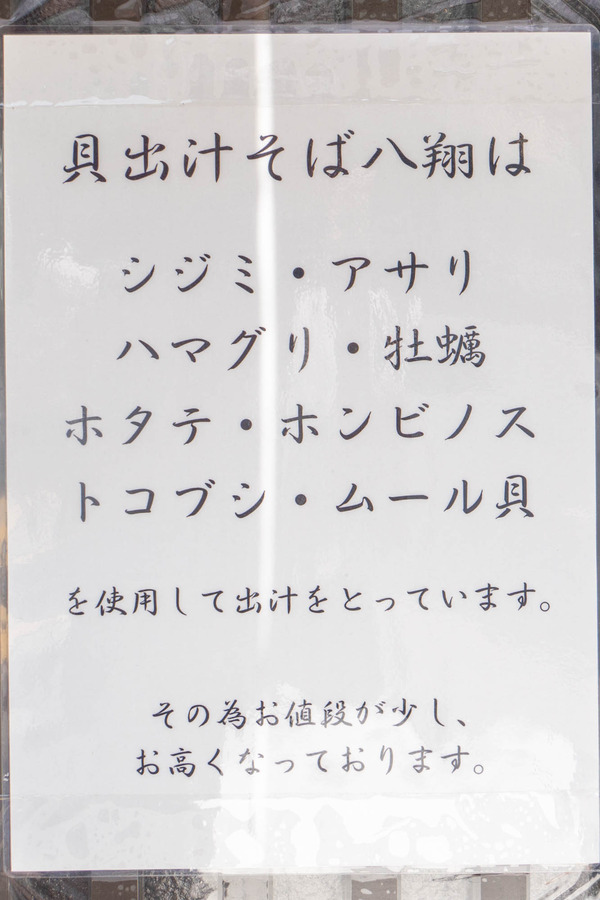 貝出汁そば八翔は
シジミ・アサリ
ハマグリ・牡蠣
ホタテ・ホンビノス
トコブシ・ムール貝
を使用して出汁をとっています。
その為お値段が少し、
お高くなっております。